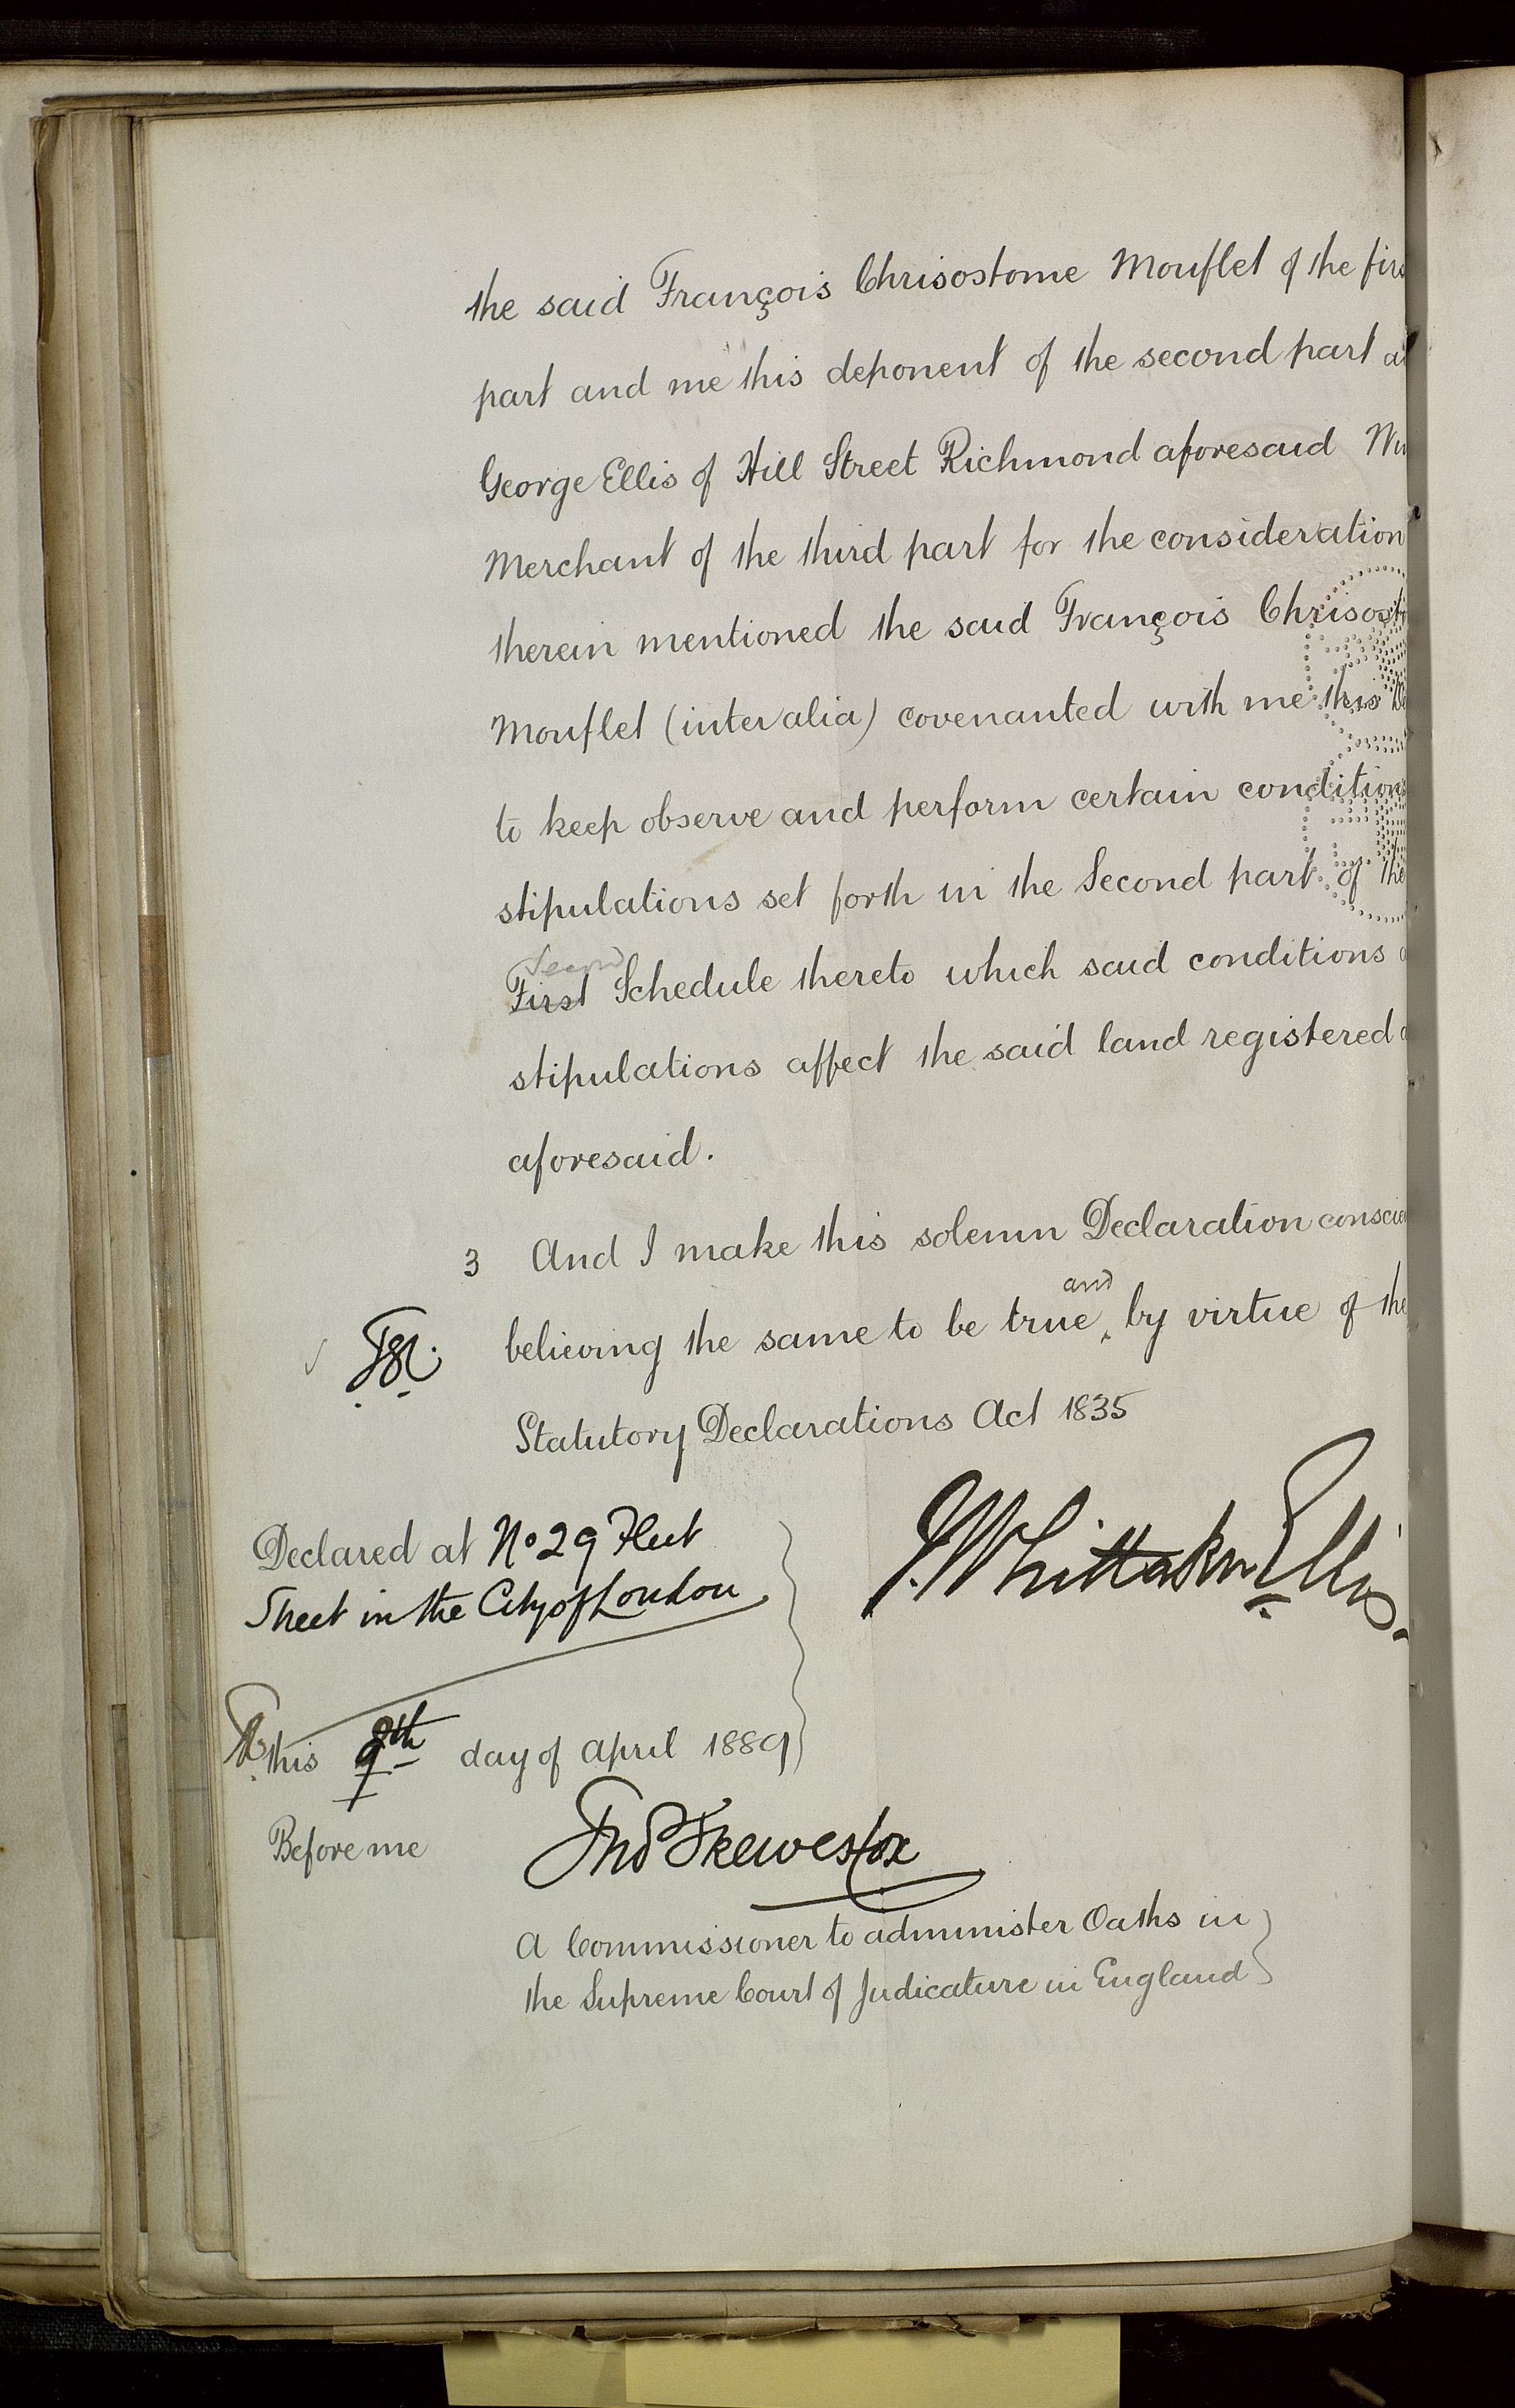 the said François Chrisostome Mouflet of the firs
part and me this deponent of the second part a
George Ellis of Hill Street Richmond aforesaid
Merchant of the third part for the consideration
therein mentioned the said François Chrisost
Mouflet (inter alia) covenanted with me this
to keep observe and perform certain conditions
stipulations set forth in the Second part of the
Second
First Schedule thereto which said conditions
stipulations affect the said land registered
aforesaid.
3 And I make this solemn Declaration conscie
and
believing the same to be true by virtue of the
Statutory Declarations Act 1835
Declared at No 29 Fleet
Street in the City of London
J. Whittaker Ellis.
this 9th day of April 1889
Before me
Jno Skewes Cox
A Commissioner to administer Oaths in
the Supreme Court of Judicature in England